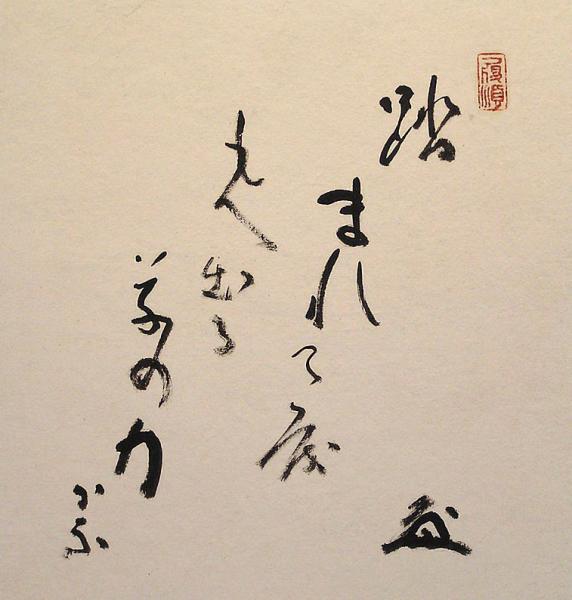 踏
まれても
もえ出る
草の力
かな